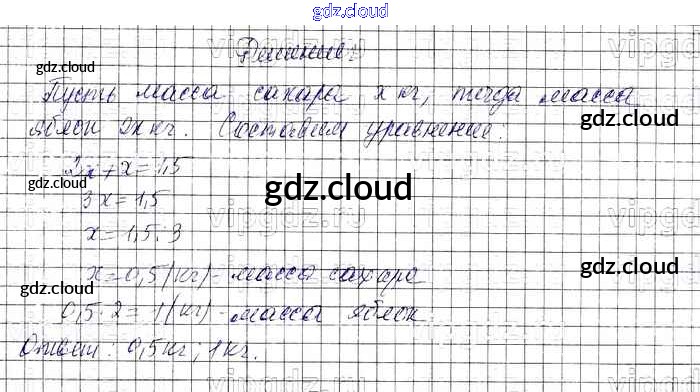 gdz.cloud
Решение:
gdz.cloud
vipgdz
Пусть масса сахара x кг, тогда масса
яблок 2x кг. Составим уравнение:
gdz.cloud
2x+x=1,5
gdz.cloud
gdz.cloud
3x=1,5
vipgdz.ru
vipgd
x=1,5:3
x=0,5(кг)-масса сахара
gdz.cloud
gdz.cloud
0,5·2=1(кг)-масса яблок
Ответ: 0,5кг; 1кг.
gdz.cloud
vipgdz.ru